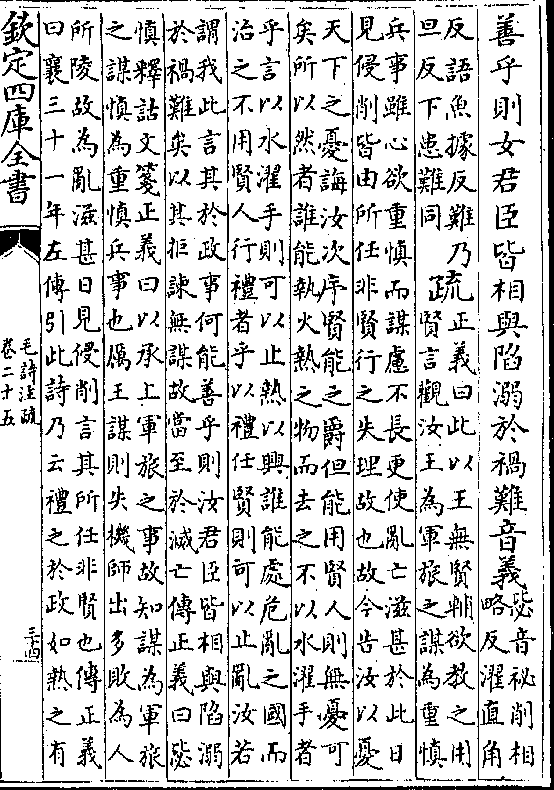 善乎則女君臣皆相與陷溺於禍難音義毖音祕削相
略反濯直角
反語魚據反難乃
旦反下患難同疏正義曰此以王無賢輔欲教之用
賢言觀汝王為軍旅之謀為重慎
兵事雖心欲重慎而謀慮不長更使亂亡滋甚於此日
見侵削皆由所任非賢行之失理故也故今告汝以憂
天下之憂誨汝次序賢能之爵但能用賢人則無憂可
矣所以然者誰能執火熱之物而去之不以水濯手者
乎言以水濯手則可以止熱以興誰能處危亂之國而
治之不用賢人行禮者乎以禮任賢則可以止亂汝若
謂我此言其於政事何能善乎則汝君臣皆相與陷溺
於禍難矣以其拒諫無謀故當至於滅亡傳正義曰毖
慎釋詁文箋正義曰以承上軍旅之事故知謀為軍旅
之謀慎為重慎兵事也厲王謀則失機師出多敗為人
所陵故為亂滋甚日見侵削言其所任非賢也傳正義
曰襄三十一年左傳引此詩乃云禮之於政如熱之有
欽定四庫全書
毛詩注疏
卷二十五
三十四